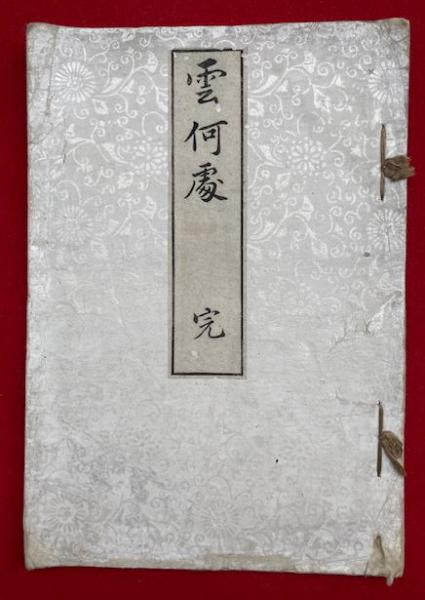 雲何處 完